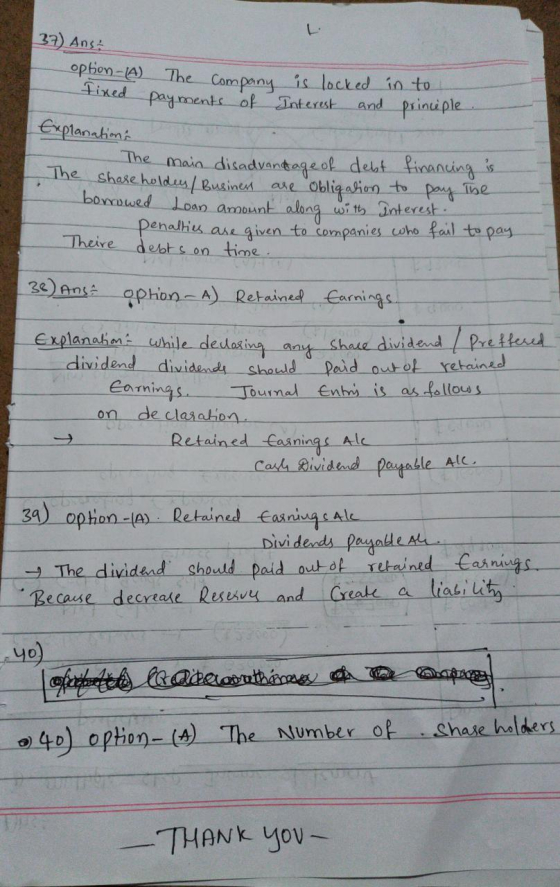 L.
37) Ans:
option-(A) The Company is locked in to
Fixed payments of Interest and principle.
Explanation:
The main disadvantage of debt financing is
The shareholders/Business are obligation to pay The
borrowed Loan amount along with Interest.
Penalties are given to companies who fail to pay
Theire debts on time.
38) Ans: option-A) Retained Earnings
Explanation: while declaring any share dividend / Preffered
dividend dividends should paid out of retained
Earnings. Journal Entry is as follows
on declaration.
→ Retained Earnings A/c
Cash Dividend payable A/c.
39) option-(A). Retained Earnings A/c
Dividends payable A/c.
→ The dividend should paid out of retained Earnings.
Because decrease Reserves and Create a liability
40)
40) option-(A) The Number of . shareholders
- THANK YOU -